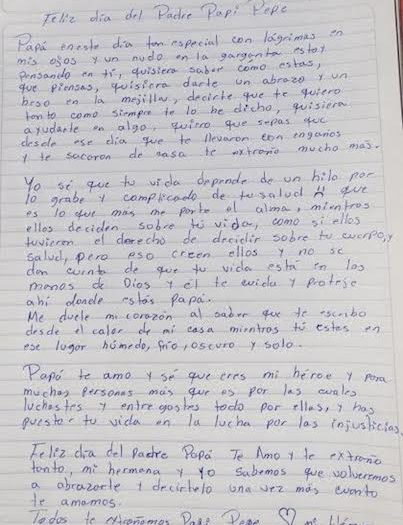 Feliz día del Padre Papi Pepe
Papá en este día tan especial con lágrimas en
mis ojos y un nudo en la garganta estoy
pensando en ti, quisiera saber como estas,
que piensas, quisiera darte un abrazo y un
beso en la mejilla, decirte que te quiero
tanto como siempre te lo he dicho, quisiera
ayudarte en algo, quiero que sepas que
desde ese día que te llevaron con engaños
y te sacaron de casa te extraño mucho más.
Yo sé que tu vida depende de un hilo por
lo grabe y complicado de tu salud y que
es lo que mas me parte el alma, mientras
ellos deciden sobre tú vida, como si ellos
tuvieran el derecho de decidir sobre tu cuerpo, y
salud, pero eso creen ellos y no se
dan cuenta de que tu vida está en las
manos de Dios y él te cuida y proteje
ahí donde estás Papá.
Me duele mi corazón al saber que te escribo
desde el calor de mi casa mientras tú estas en
ese lugar húmedo, frio, oscuro y solo.
Papá te amo y sé que eres mi héroe y para
muchas personas más que es por las cuales
luchastes y entregastes todo por ellas, y has
puesto tu vida en la lucha por las injusticias.
Feliz día del Padre Papá Te Amo y te extraño
tanto, mi hermana y yo sabemos que volveremos
a abrazarte y decirtelo una vez más cuanto
te amamos.
Todos te extrañamos Papi Pepe ♡ mi